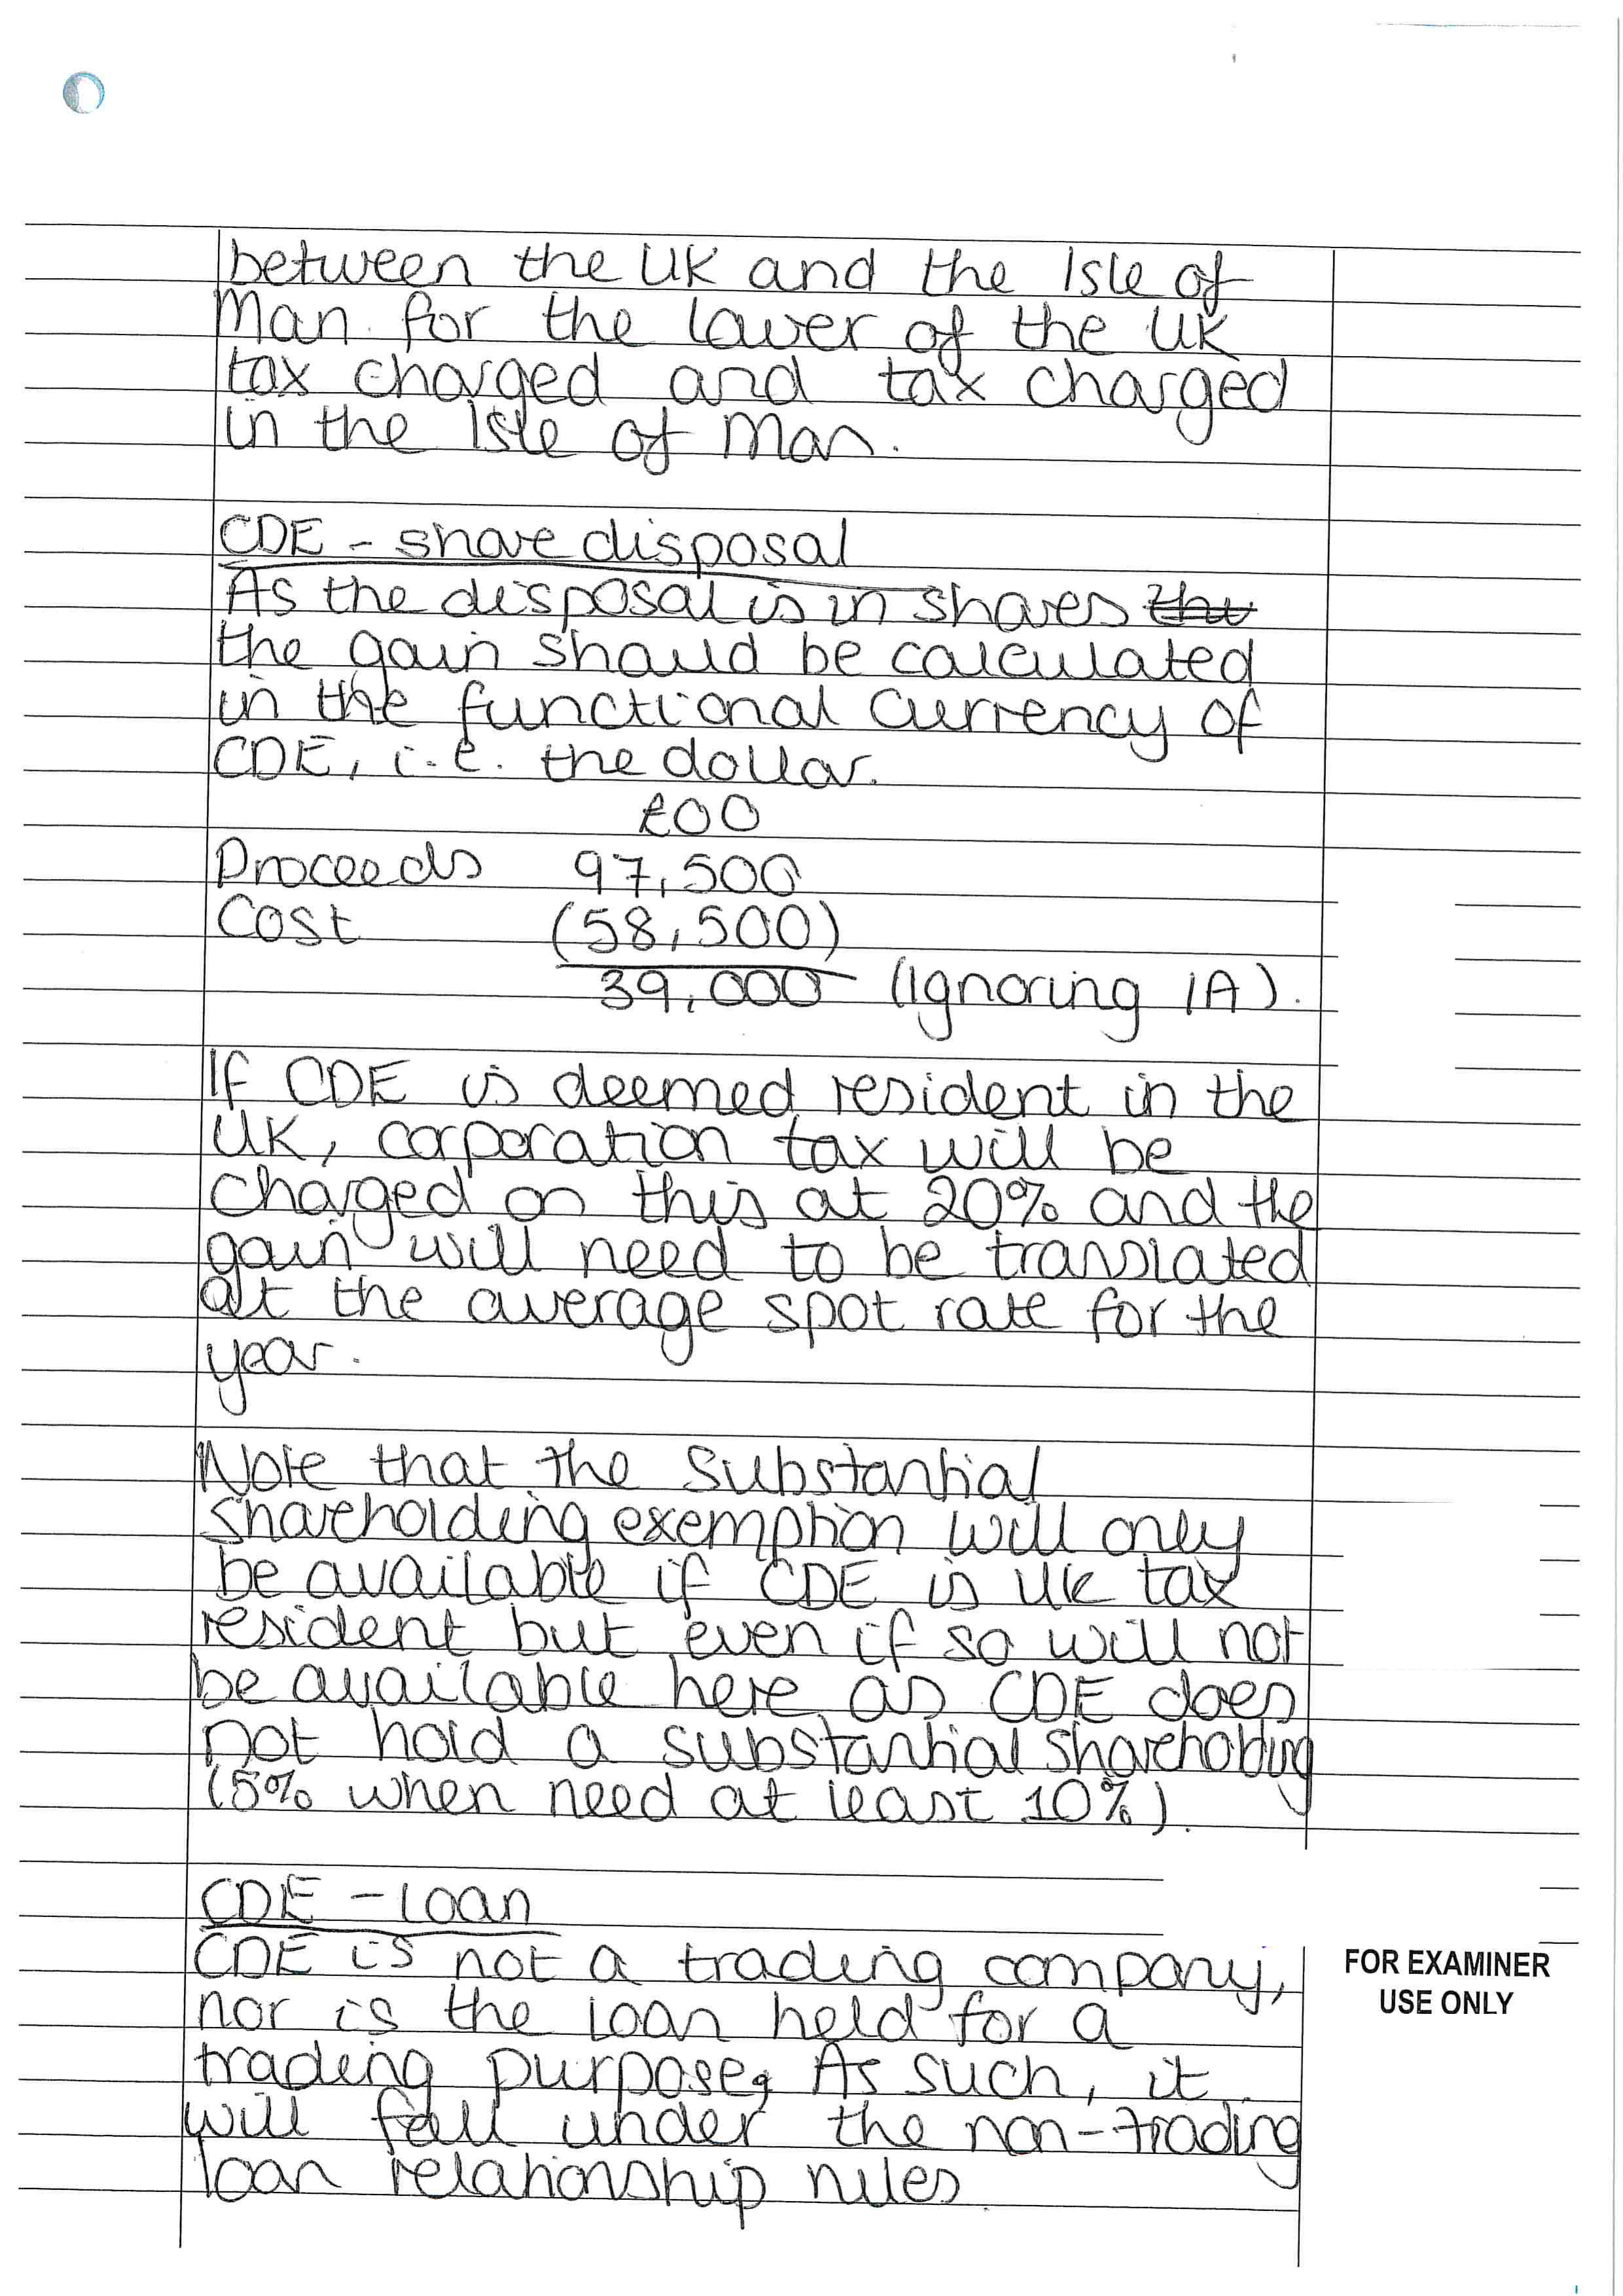 between the UK and the Isle of
Man for the lower of the UK
tax charged and tax charged
in the Isle of Man.
CDE - share disposal
As the disposal is in shares the
the gain should be calculated
in the functional currency of
CDE, i.e. the dollar.
£00
Proceeds 97,500
Cost (58,500)
39,000 (Ignoring IA).
If CDE is deemed resident in the
UK, corporation tax will be
charged on this at 20% and the
gain will need to be translated
at the average spot rate for the
year.
Note that the substantial
shareholding exemption will only
be available if CDE is UK tax
resident but even if so will not
be available here as CDE does
not hold a substantial shareholding
(5% when need at least 10%).
CDE - loan
CDE is not a trading company,
nor is the loan held for a
trading purpose. As such, it
will fall under the non-trading
loan relationship rules.
FOR EXAMINER
USE ONLY